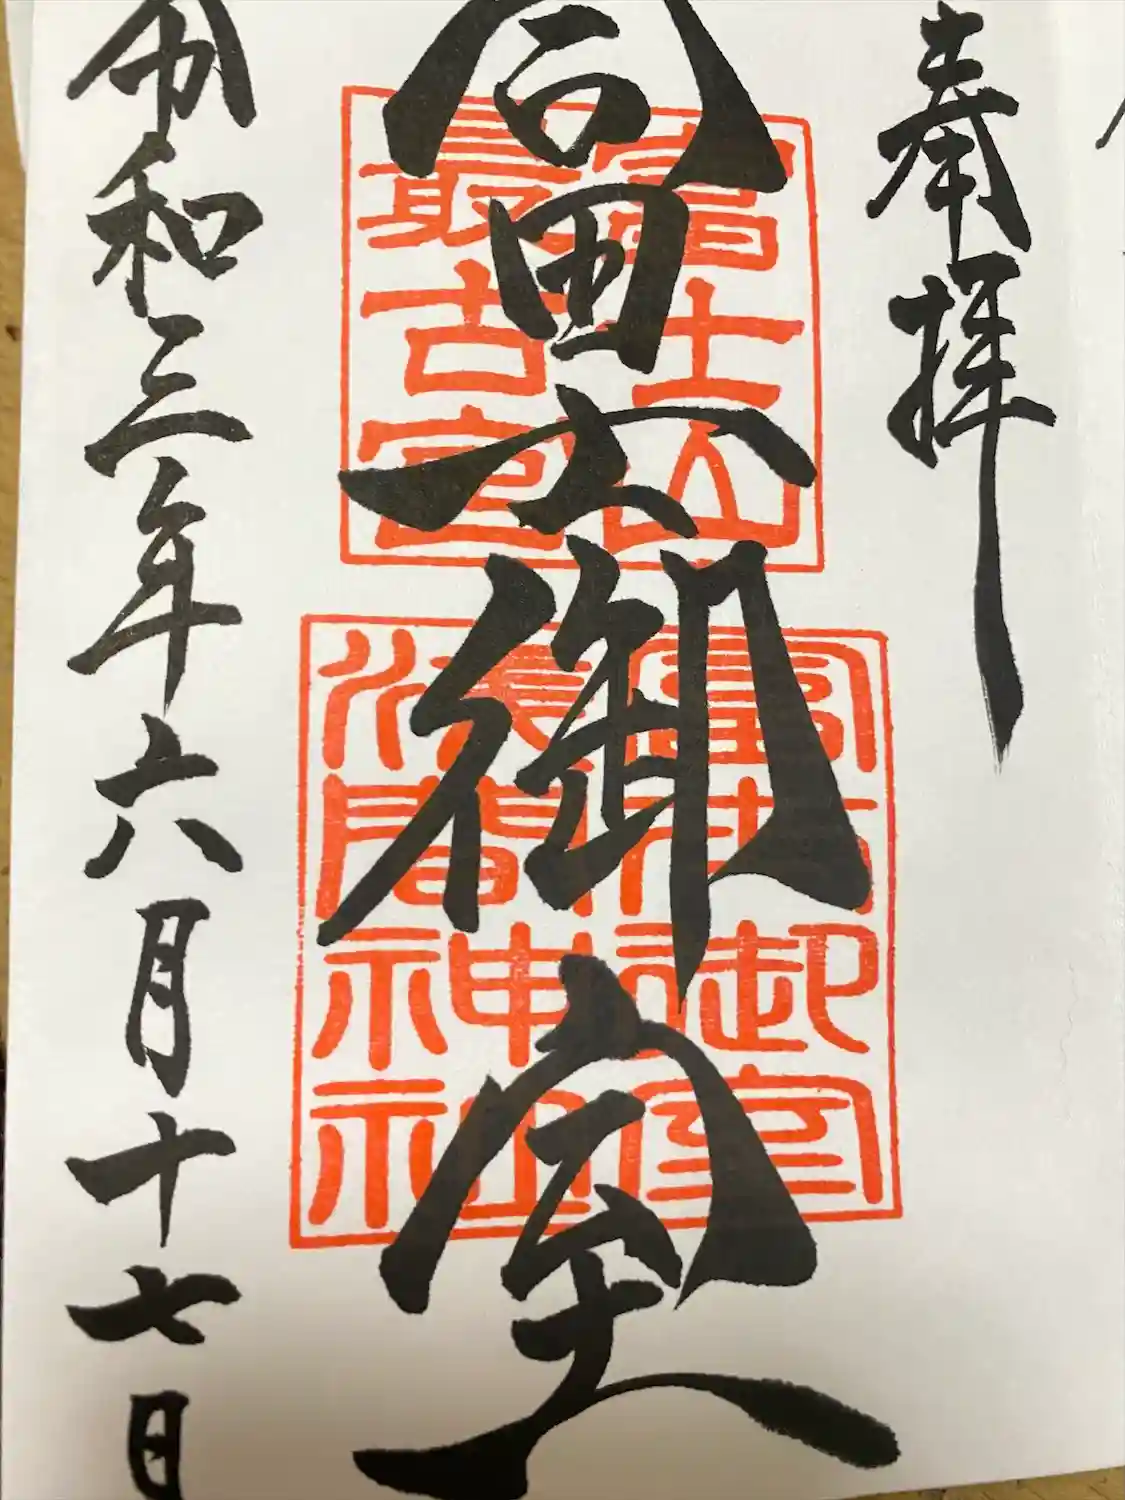 奉拝
富士御室
富士山
最古宮
富士山御室
浅間神社
令和三年六月十七日